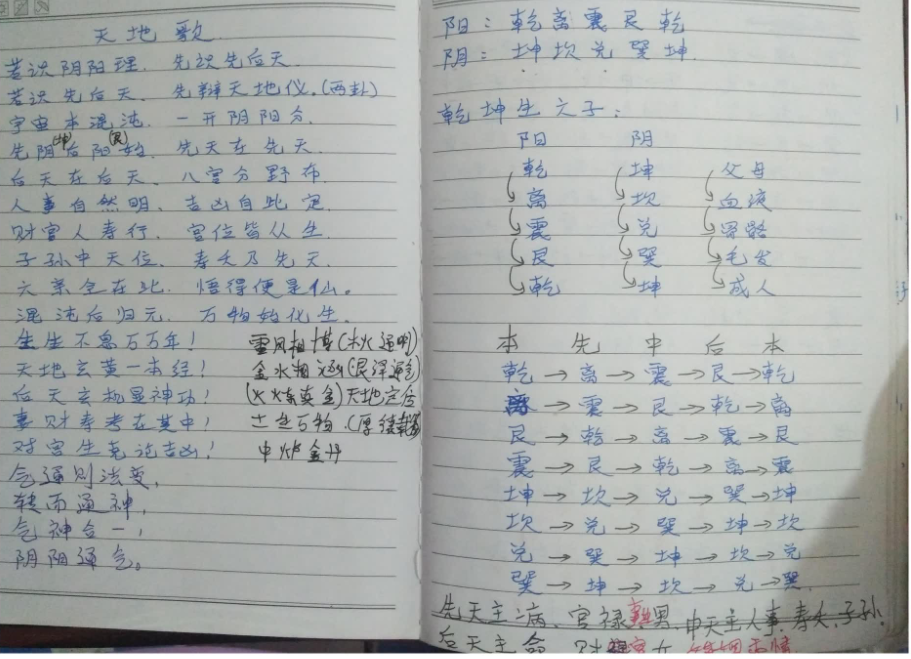 天地歌
若识阴阳理. 先识先后天.
若识先后天. 先辩天地仪.(两卦)
宇宙本混沌. 一开阴阳分.
(坤) (艮)
先阴后阳始. 先天在先天.
后天在后天. 八宫分野布.
人事自然明. 吉凶自此定.
财官人寿行. 宫位皆从生.
子孙中天位. 寿夭乃先天.
六亲全在此. 悟得便是仙。
混沌后归元. 万物始化生.
生生不息万万年! 雷风相搏(木火通明)
天地玄黄一本经! 金水相(艮泽通气)
后天玄机显神功! (火炼真金)天地定位
妻财寿考在其中! 土生万物.(厚德载
财官生克论吉凶! 中炉金丹
气通则法变,
转而通神,
气神合一,
阴阳通气。
阳: 乾离震艮乾
阴: 坤坎兑巽坤
乾坤生六子:
阳 阴
乾 坤 父母
离 坎 血液
震 兑 骨骼
艮 巽 毛发
乾 坤 成人
本 先 中 后 本
乾→离→震→艮→乾
离→震→艮→乾→离
艮→乾→离→震→艮
震→艮→乾→离→震
坤→坎→兑→巽→坤
坎→兑→巽→坤→坎
兑→巽→坤→坎→兑
巽→坤→坎→兑→巽
先天主病、官禄 男. 中天主人事. 寿夭. 子孙.
后天主命. 财 女